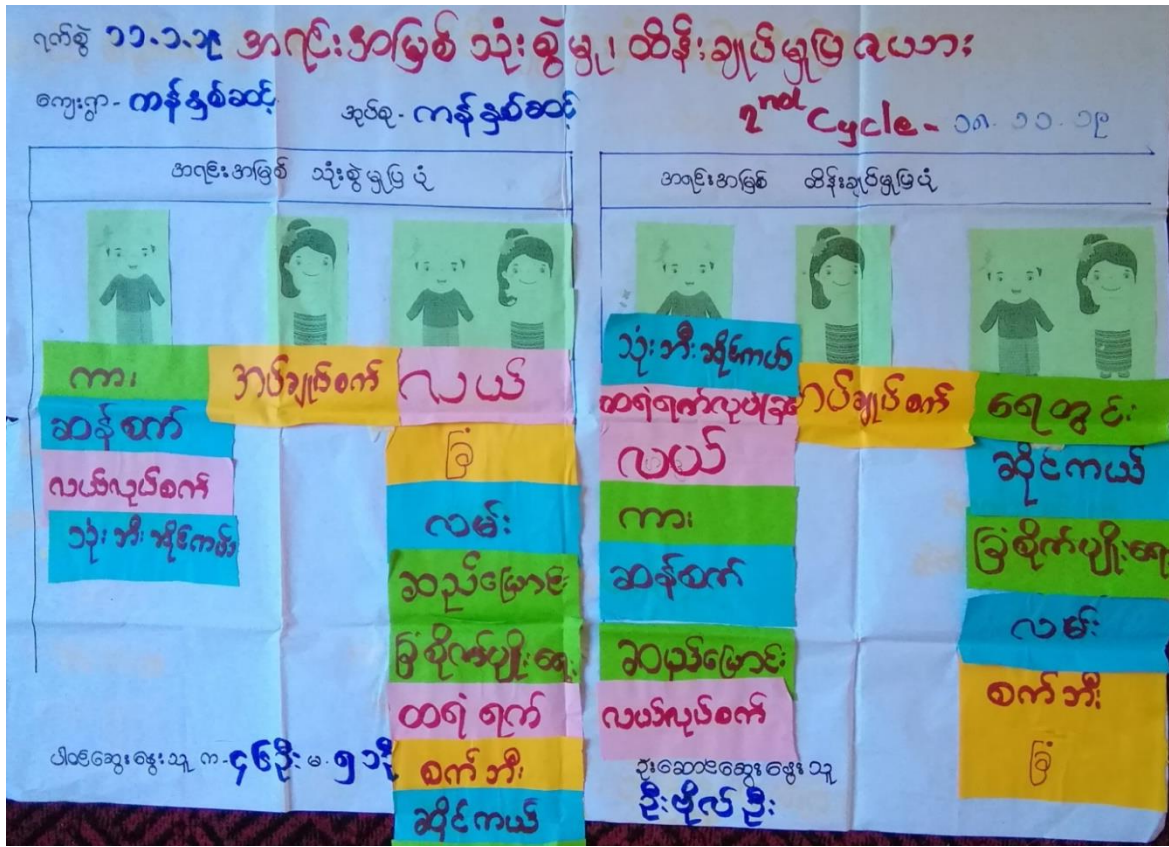 ရက်စွဲ ၁၁.၁.၁၉ အရင်းအမြစ် သုံးစွဲမှု၊ ထိန်းချုပ်မှုပြ ဇယား
ကျေးရွာ - ကန်နှစ်ဆင့် အုပ်စု - ကန်နှစ်ဆင့် 2nd Cycle - ၁၈.၁၁.၁၉
အရင်းအမြစ် သုံးစွဲမှုပြပုံ
ကား
ဆန်စက်
လယ်လုပ်စက်
သုံးဘီးဆိုင်ကယ်
အပ်ချုပ်စက်
လယ်
ခြံ
လမ်း
ဆည်မြောင်း
ခြံစိုက်ပျိုးရေး
ထရံ ရက်
စက်ဘီး
ဆိုင်ကယ်
ပါဝင်ဆွေးနွေးသူ က - ၄၆ဦး မ - ၅၁ဦး
အရင်းအမြစ် ထိန်းချုပ်မှုပြပုံ
သုံးဘီးဆိုင်ကယ်
ထရံရက်လုပ်ခြင်း
လယ်
ကား
ဆန်စက်
ဆည်မြောင်း
လယ်လုပ်စက်
အပ်ချုပ်စက်
ရေတွင်း
ဆိုင်ကယ်
ခြံစိုက်ပျိုးရေး
လမ်း
စက်ဘီး
ခြံ
ဦးဆောင်ဆွေးနွေးသူ